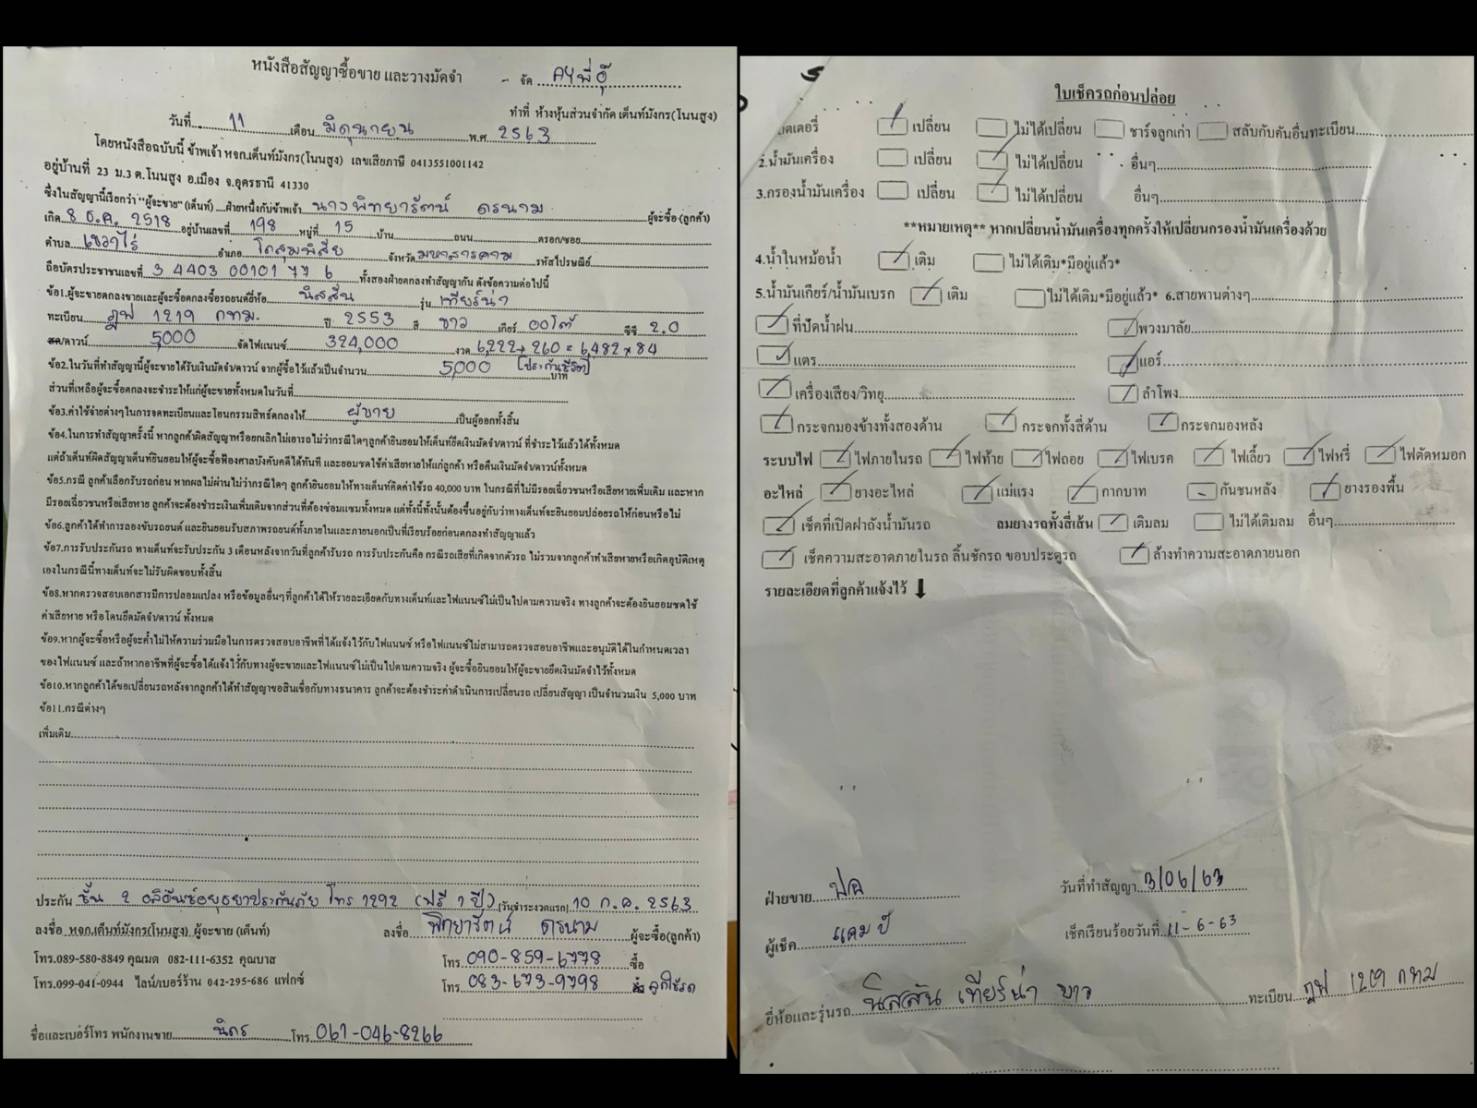 หนังสือสัญญาซื้อขาย และวางมัดจำ - จัด AYพี่อุ๊
ทำที่ ห้างหุ้นส่วนจำกัด เต็นท์มังกร(โนนสูง)
วันที่ 11 เดือน มิถุนายน พ.ศ. 2563
โดยหนังสือฉบับนี้ ข้าพเจ้า หจก.เต็นท์มังกร(โนนสูง) เลขเสียภาษี 0413551001142
อยู่บ้านที่ 23 ม.3 ต.โนนสูง อ.เมือง จ.อุดรธานี 41330
ซึ่งในสัญญานี้เรียกว่า "ผู้จะขาย" (เต็นท์) ...ฝ่ายหนึ่งกับข้าพเจ้า นางพิทยารัตน์ ดรนาม ผู้จะซื้อ (ลูกค้า)
เกิด 8 ธ.ค. 2518 อยู่บ้านเลขที่ 198 หมู่ที่ 15 บ้าน ถนน ตรอก/ซอย
ตำบล เขวาไร่ อำเภอ โกสุมพิสัย จังหวัด มหาสารคาม รหัสไปรษณีย์
ถือบัตรประชาชนเลขที่ 3 4403 00101 77 6 ทั้งสองฝ่ายตกลงทำสัญญากัน ดังข้อความต่อไปนี้
ข้อ1.ผู้จะขายตกลงขายและผู้จะซื้อตกลงซื้อรถยนต์ยี่ห้อ นิสสัน รุ่น เทียร์น่า
ทะเบียน ฎฬ 1219 กทม. ปี 2553 สี ขาว เกียร์ ออโต้ ซีซี 2.0
สด/ดาวน์ 5,000 จัดไฟแนนซ์ 324,000 งวด 6,222+260 = 6,482 x 84
ข้อ2.ในวันที่ทำสัญญานี้ผู้จะขายได้รับเงินมัดจำ/ดาวน์ จากผู้ซื้อไว้แล้วเป็นจำนวน 5,000 บาท (ประกันชีวิต)
ส่วนที่เหลือผู้จะซื้อตกลงจะชำระให้แก่ผู้จะขายทั้งหมดในวันที่
ข้อ3.ค่าใช้จ่ายต่างๆในการจดทะเบียนและโอนกรรมสิทธ์ตกลงให้ ผู้ขาย เป็นผู้ออกทั้งสิ้น
ข้อ4.ในการทำสัญญาครั้งนี้ หากลูกค้าผิดสัญญาหรือยกเลิกไม่เอารถไม่ว่ากรณีใดๆลูกค้ายินยอมให้เต็นท์ยึดเงินมัดจำ/ดาวน์ ที่ชำระไว้แล้วได้ทั้งหมด
แต่ถ้าเต็นท์ผิดสัญญาเต็นท์ยินยอมให้ผู้จะซื้อฟ้องศาลบังคับคดีได้ทันที และยอมชดใช้ค่าเสียหายให้แก่ลูกค้า หรือคืนเงินมัดจำ/ดาวน์ทั้งหมด
ข้อ5.กรณี ลูกค้าเลือกรับรถก่อน หากผลไม่ผ่านไม่ว่ากรณีใดๆ ลูกค้ายินยอมให้ทางเต็นท์คิดค่าใช้รถ 40,000 บาท ในกรณีที่ไม่มีรอยเฉี่ยวชนหรือเสียหายเพิ่มเติม และหาก
มีรอยเฉี่ยวชนหรือเสียหาย ลูกค้าจะต้องชำระเงินเพิ่มเติมจากส่วนที่ต้องซ่อมแซมทั้งหมด แต่ทั้งนี้ทั้งนั้นต้องขึ้นอยู่กับว่าทางเต็นท์จะยินยอมปล่อยรถให้ก่อนหรือไม่
ข้อ6.ลูกค้าได้ทำการลองขับรถยนต์ และยินยอมรับสภาพรถยนต์ทั้งภายในและภายนอกเป็นที่เรียบร้อยก่อนตกลงทำสัญญาแล้ว
ข้อ7.การรับประกันรถ ทางเต็นท์จะรับประกัน 3 เดือนหลังจากวันที่ลูกค้ารับรถ การรับประกันคือ กรณีรถเสียที่เกิดจากตัวรถ ไม่รวมจากลูกค้าทำเสียหายหรือเกิดอุบัติเหตุ
เองในกรณีนี้ทางเต็นท์จะไม่รับผิดชอบทั้งสิ้น
ข้อ8.หากตรวจสอบเอกสารมีการปลอมแปลง หรือข้อมูลอื่นๆที่ลูกค้าได้ให้รายละเอียดกับทางเต็นท์และไฟแนนซ์ไม่เป็นไปตามความจริง ทางลูกค้าจะต้องยินยอมชดใช้
ค่าเสียหาย หรือโดนยึดมัดจำ/ดาวน์ ทั้งหมด
ข้อ9.หากผู้จะซื้อหรือผู้จะค้ำไม่ให้ความร่วมมือในการตรวจสอบอาชีพที่ได้แจ้งไว้กับไฟแนนซ์ หรือไฟแนนซ์ไม่สามารถตรวจสอบอาชีพและอนุมัติได้ในกำหนดเวลา
ของไฟแนนซ์ และถ้าหากอาชีพที่ผู้จะซื้อได้แจ้งไว้กับทางผู้จะขายและไฟแนนซ์ไม่เป็นไปตามความจริง ผู้จะซื้อยินยอมให้ผู้จะขายยึดเงินมัดจำไว้ทั้งหมด
ข้อ10.หากลูกค้าได้ขอเปลี่ยนรถหลังจากลูกค้าได้ทำสัญญาขอสินเชื่อกับทางธนาคาร ลูกค้าจะต้องชำระค่าดำเนินการเปลี่ยนรถ เปลี่ยนสัญญา เป็นจำนวนเงิน 5,000 บาท
ข้อ11.กรณีต่างๆ
เพิ่มเติม
ประกัน ชั้น 2 อลิอันซ์อยุธยาประกันภัย โทร 1292 (ฟรี 1 ปี) (วันชำระงวดแรก) 10 ก.ค. 2563
ลงชื่อ หจก.เต็นท์มังกร(โนนสูง) ผู้จะขาย (เต็นท์) ลงชื่อ พิทยารัตน์ ดรนาม ผู้จะซื้อ(ลูกค้า)
โทร.089-580-8849 คุณมด 082-111-6352 คุณบาส โทร. 090-859-6778 ซื้อ
โทร.099-041-0944 ไลน์/เบอร์ร้าน 042-295-686 แฟกซ์ โทร. 083-673-9798 ลูกใช้รถ
ชื่อและเบอร์โทร พนักงานขาย นิกร โทร 061-046-8266
ใบเช็ครถก่อนปล่อย
แบตเตอรี่ เปลี่ยน ไม่ได้เปลี่ยน ชาร์จลูกเก่า สลับกับคันอื่นทะเบียน
2.น้ำมันเครื่อง เปลี่ยน ไม่ได้เปลี่ยน อื่นๆ
3.กรองน้ำมันเครื่อง เปลี่ยน ไม่ได้เปลี่ยน อื่นๆ
**หมายเหตุ** หากเปลี่ยนน้ำมันเครื่องทุกครั้งให้เปลี่ยนกรองน้ำมันเครื่องด้วย
4.น้ำในหม้อน้ำ เติม ไม่ได้เติม*มีอยู่แล้ว*
5.น้ำมันเกียร์/น้ำมันเบรก เติม ไม่ได้เติม*มีอยู่แล้ว* 6.สายพานต่างๆ
ที่ปัดน้ำฝน พวงมาลัย
แตร แอร์
เครื่องเสียง/วิทยุ ลำโพง
กระจกมองข้างทั้งสองด้าน กระจกทั้งสี่ด้าน กระจกมองหลัง
ระบบไฟ ไฟภายในรถ ไฟท้าย ไฟถอย ไฟเบรค ไฟเลี้ยว ไฟหรี่ ไฟตัดหมอก
อะไหล่ ยางอะไหล่ แม่แรง กากบาท กันชนหลัง ยางรองพื้น
เช็คที่เปิดฝาถังน้ำมันรถ ลมยางรถทั้งสี่เส้น เติมลม ไม่ได้เติมลม อื่นๆ
เช็คความสะอาดภายในรถ ลิ้นชักรถ ขอบประตูรถ ล้างทำความสะอาดภายนอก
รายละเอียดที่ลูกค้าแจ้งไว้
ฝ่ายขาย วันที่ทำสัญญา 3/06/63
ผู้เช็ค แคมป์ เช็คเรียบร้อยวันที่ 11-6-63
ยี่ห้อและรุ่นรถ นิสสัน เทียร์น่า ขาว ทะเบียน ฎฬ 1219 กทม